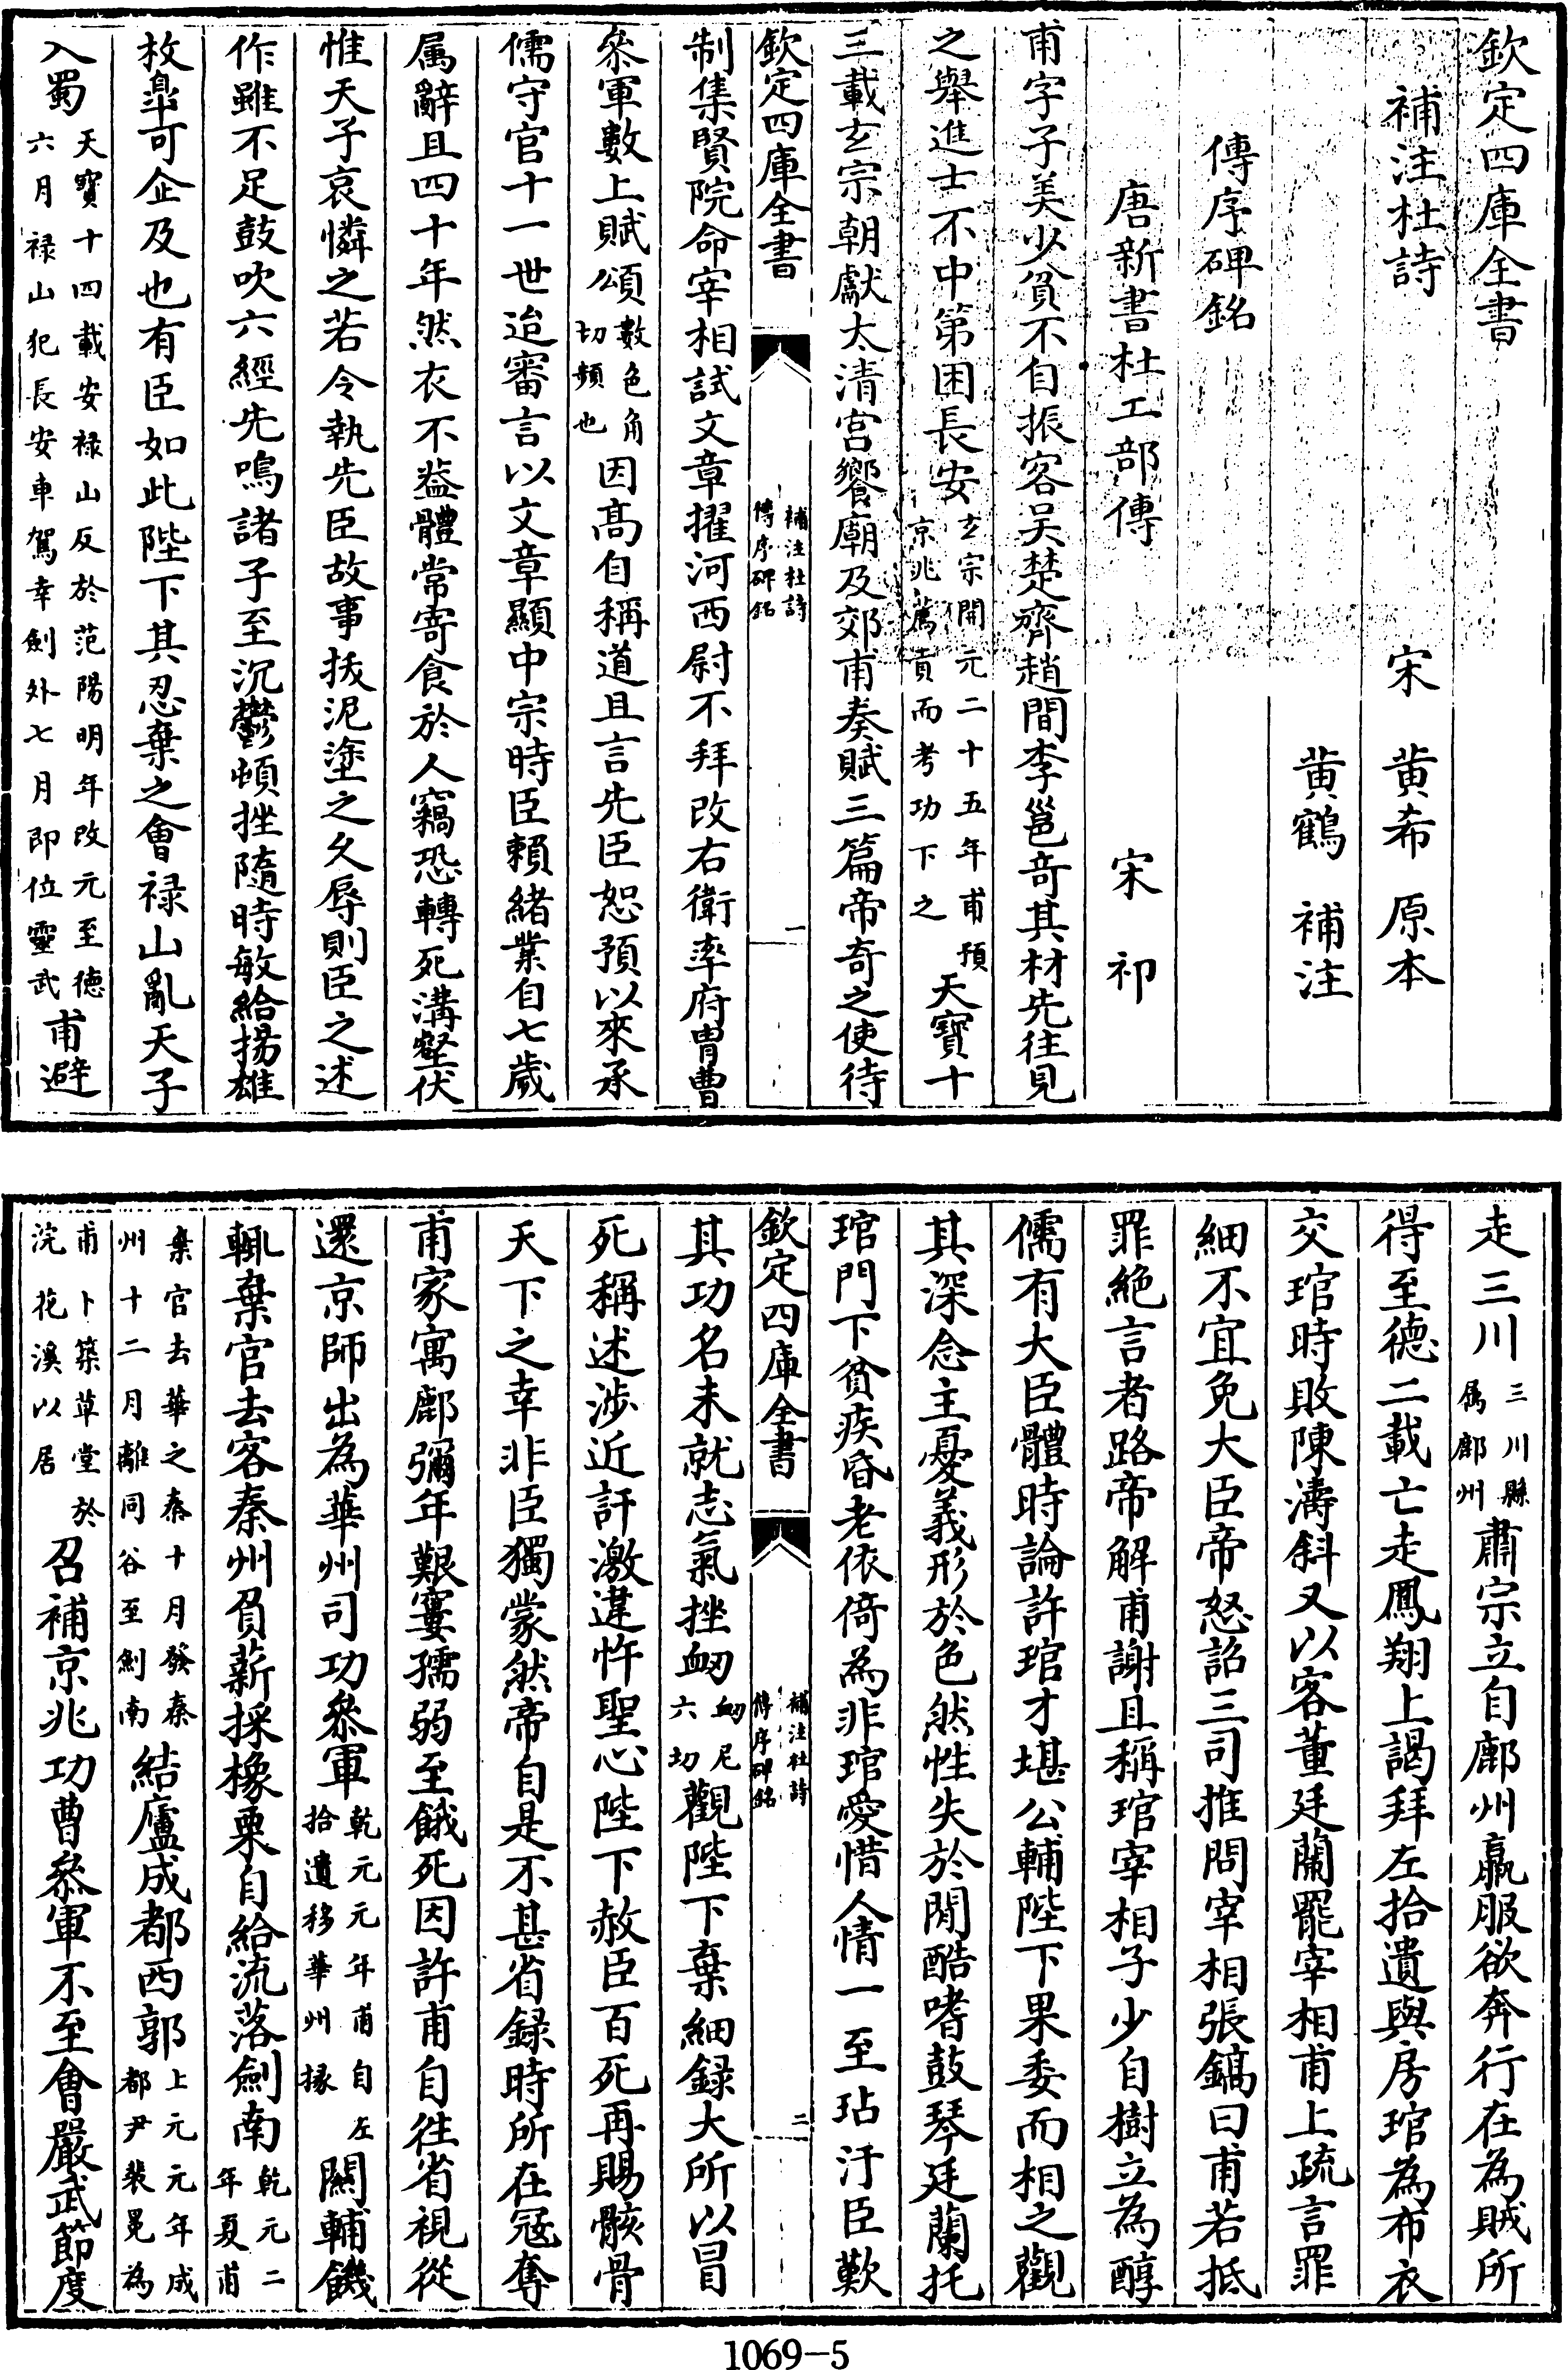 欽定四庫全書
補注杜詩
宋 黄希 原本
黄鶴 補注
傳序碑銘
唐新書杜工部傳 宋 祁
甫字子美少貧不自振客吴楚齊趙間李邕竒其材先往見
之舉進士不中第困長安玄宗開元二十五年甫預京兆薦貢而考功下之天寶十
三載玄宗朝獻太清宫饗廟及郊甫奏賦三篇帝奇之使待
欽定四庫全書 補注杜詩 傳序碑銘 一
制集賢院命宰相試文章擢河西尉不拜改右衛率府胄曹
叅軍數上賦頌數色角切頻也因髙自稱道且言先臣恕預以來承
儒守官十一世迨審言以文章顯中宗時臣賴緒業自七歳
属辭且四十年然衣不葢體常寄食於人竊恐轉死溝壑伏
惟天子哀憐之若令執先臣故事拔泥塗之久辱則臣之述
作雖不足鼓吹六經先鳴諸子至沉鬱頓挫隨時敏給揚雄
枚臯可企及也有臣如此陛下其忍棄之會禄山亂天子
入蜀天寶十四載安禄山反於范陽明年改元至德六月禄山犯長安車駕幸劍外七月即位靈武甫避
走三川三川縣属鄜州肅宗立自鄜州羸服欲奔行在為賊所
得至德二載亡走鳳翔上謁拜左拾遺與房琯為布衣
交琯時敗陳濤斜又以客董廷蘭罷宰相甫上疏言罪
細不宜免大臣帝怒詔三司推問宰相張鎬曰甫若抵
罪絶言者路帝解甫謝且稱琯宰相子少自樹立為醇
儒有大臣體時論許琯才堪公輔陛下果委而相之觀
其深念主憂義形於色然性失於簡酷嗜鼓琴廷蘭托
琯門下貧疾昏老依倚為非琯愛惜人情一至玷汙臣歎
欽定四庫全書 補注杜詩 傳序碑銘 二
其功名未就志氣挫衂衂尼六切觀陛下棄細録大所以冒
死稱述渉近訐激違忤聖心陛下赦臣百死再賜骸骨
天下之幸非臣獨蒙然帝自是不甚省録時所在冦奪
甫家寓鄜彌年艱窶孺弱至餓死因許甫自往省視從
還京師出為華州司功叅軍乾元元年甫自左拾遺移華州掾關輔饑
輒棄官去客秦州負薪採橡栗自給流落劍南乾元二年夏甫
棄官去華之秦十月發秦州十二月離同谷至劍南結廬成都西郭上元元年成都尹裴冕為
甫卜築草堂於浣花溪以居召補京兆功曹叅軍不至會嚴武節度
1069-5